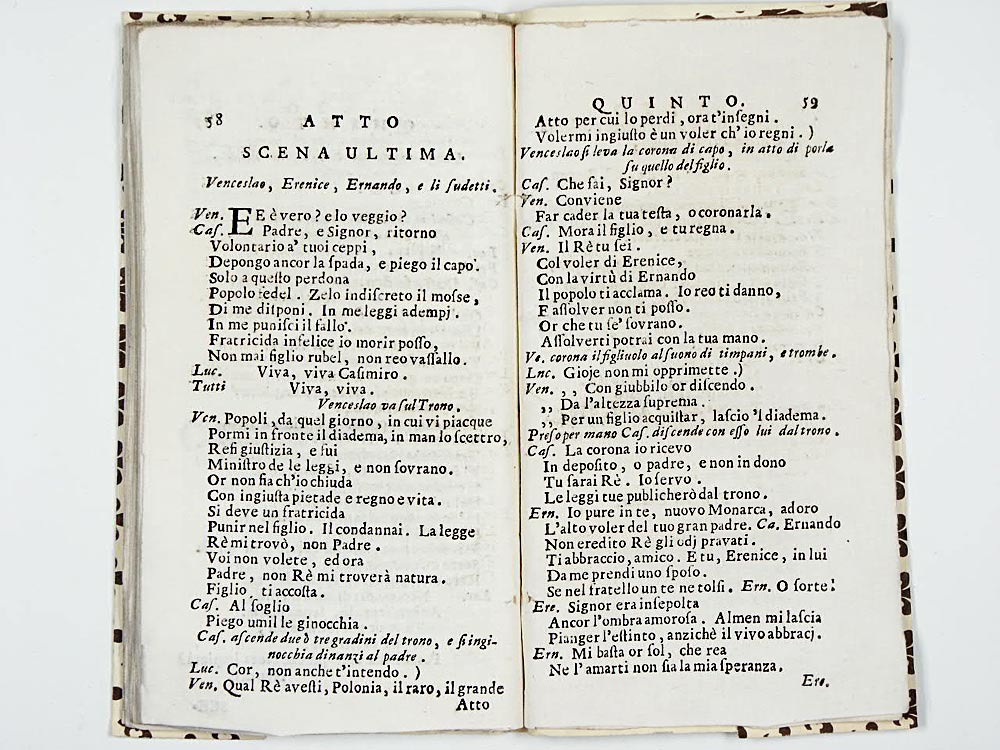 58 ATTO
SCENA ULTIMA.
Venceslao, Erenice, Ernando, e li sudetti.
Ven. EE è vero? e lo veggio?
Cas. Padre, e Signor, ritorno
Volontario a' tuoi ceppi,
Depongo ancor la spada, e piego il capo.
Solo a questo perdona
Popolo fedel. Zelo indiscreto il mosse,
Di me disponi. In me leggi adempj.
In me punisci il fallo.
Fratricida infelice io morir posso,
Non mai figlio rubel, non reo vassallo.
Luc. Viva, viva Casimiro.
Tutti Viva, viva.
Venceslao va sul Trono.
Ven. Popoli, da quel giorno, in cui vi piacque
Pormi in fronte il diadema, in man lo scettro,
Resi giustizia, e fui
Ministro de le leggi, e non sovrano.
Or non fia ch'io chiuda
Con ingiusta pietade e regno e vita.
Si deve un fratricida
Punir nel figlio. Il condannai. La legge
Rè mi trovò, non Padre.
Voi non volete, ed ora
Padre, non Rè mi troverà natura.
Figlio, ti accosta.
Cas. Al soglio
Piego umil le ginocchia.
Cas. ascende due ò tre gradini del trono, e si ingi-
nocchia dinanzi al padre.
Luc. Cor, non anche t'intendo. )
Ven. Qual Rè avesti, Polonia, il raro, il grande
Atto
QUINTO. 59
Atto per cui lo perdi, ora t'insegni.
Volermi ingiusto è un voler ch'io regni. )
Venceslao si leva la corona di capo, in atto di porla
su quello del figlio.
Cas. Che fai, Signor?
Ven. Conviene
Far cader la tua testa, o coronarla.
Cas. Mora il figlio, e tu regna.
Ven. Il Rè tu sei.
Col voler di Erenice,
Con la virtù di Ernando
Il popolo ti acclama. Io reo ti danno,
E assolver non ti posso.
Or che tu se' sovrano.
Assolverti potrai con la tua mano.
Ve. corona il figliuolo al suono di timpani, e trombe.
Luc. Gioje non mi opprimette.)
Ven. ,, Con giubbilo or discendo.
,, Da l'altezza suprema.
,, Per un figlio acquistar, lascio 'l diadema.
Preso per mano Cas. discende con esso lui dal trono.
Cas. La corona io ricevo
In deposito, o padre, e non in dono
Tu sarai Rè. Io servo.
Le leggi tue publicherò dal trono.
Ern. Io pure in te, nuovo Monarca, adoro
L'alto voler del tuo gran padre. Ca. Ernando
Non eredito Rè gli odj pravati.
Ti abbraccio, amico. E tu, Erenice, in lui
Da me prendi uno sposo.
Se nel fratello un te ne tolsi. Ern. O sorte!
Ere. Signor era insepolta
Ancor l'ombra amorosa. Almen mi lascia
Pianger l'estinto, anzichè il vivo abbracj.
Ern. Mi basta or sol, che rea
Ne l'amarti non sia la mia speranza.
Ere.